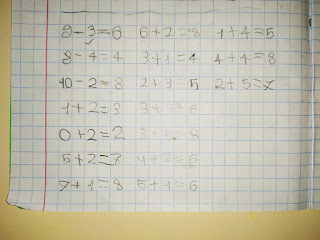 9-3=6 6+2=8 1+4=5
8-4=4 3+1=4 4+4=8
10-2=8 2+3=5 2+5=7
1+2=3 3+3=6
0+2=2
5+2=7 4+2=6
7+1=8 5+1=6